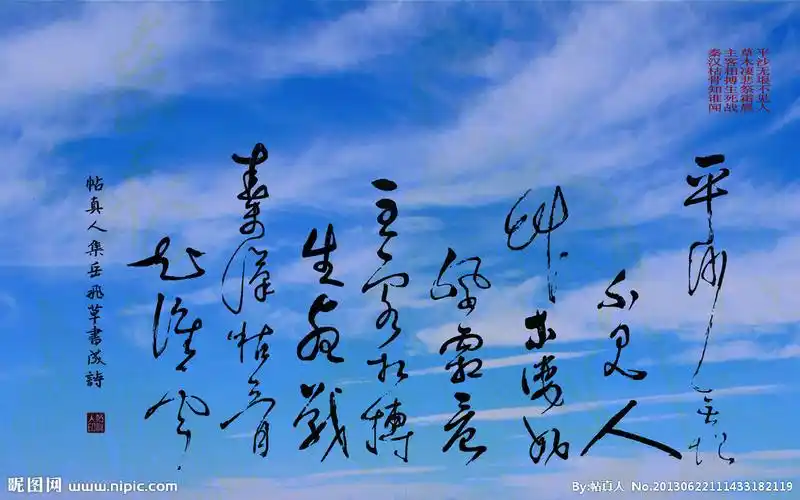 平沙无垠不见人
草木凄悲祭霜晨
主客相搏生死战
秦汉枯骨知谁闻
平沙無垠
不見人
草木凄悲
霜晨
主客相搏
生死戰
秦漢枯骨
知誰聞
帖真人集岳飛草書成詩
昵图网 www.nipic.com
By:帖真人 No.20130622111433182119